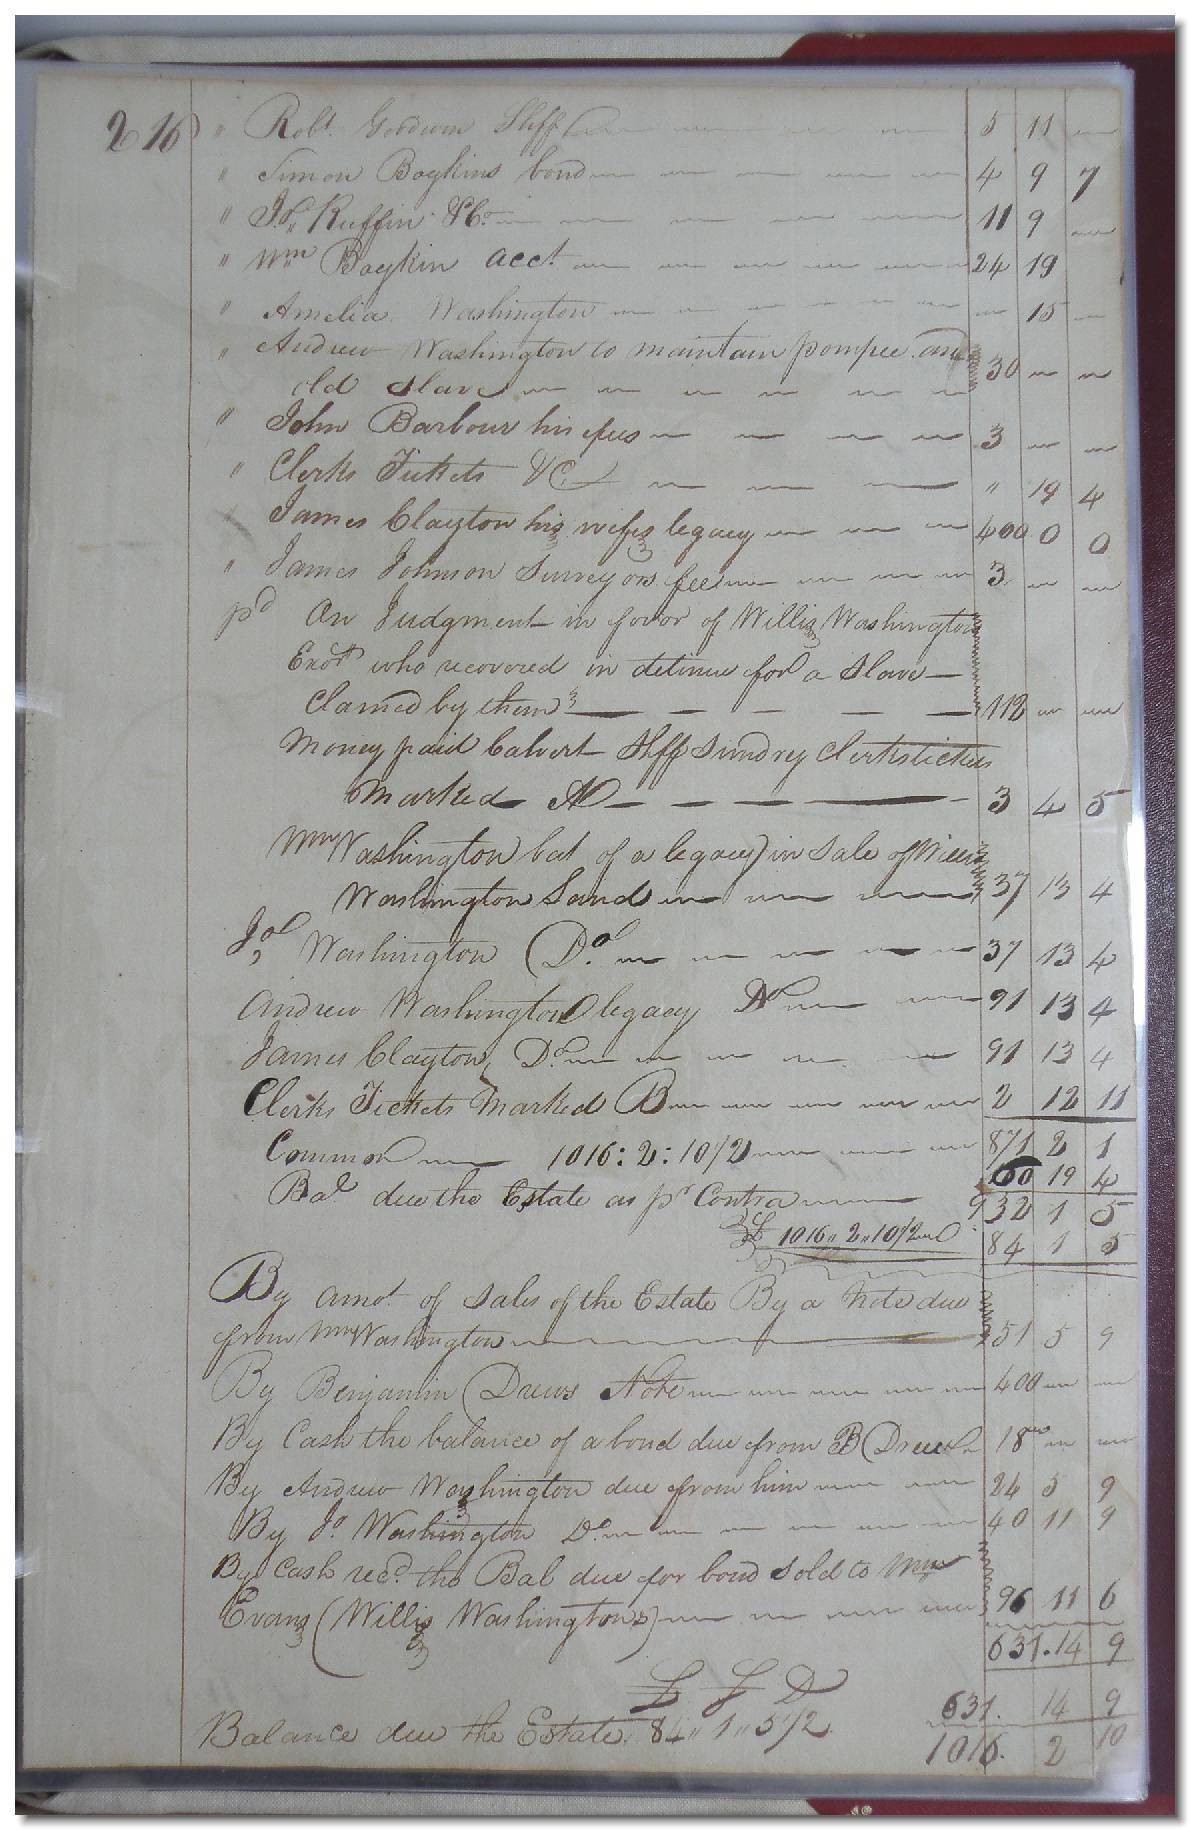 216) " Robt. Goodwin Shff 5 11
" Simon Boykins bond 4 9 7
" Jos. Ruffin &Co. 11 9
" Wm Boykin acct. 24 19
" Amelia Washington 15
" Andrew Washington to maintain pompee an
old slave 30
" John Barbour his 3
" Clerks Tickets &C " 19 4
" James Clayton his wifes legacy 400 0 0
" James Johnson Surveyors fee 3
pd An Judgment in favor of Willis Washington
Exors who recovered in detinue for a Slave
Clamed by them 112
Money paid Calvert Shff Sundrey Clerks tickets
Marked A 3 4 5
Wm Washington bal of a legacy) in Sale of Willis
Washington Land 37 13 4
Jos Washington Do. 37 13 4
Andrew Washington legacy Do 91 13 4
James Clayton, Do. 91 13 4
Clerks Tickets Marked B 2 12 11
Common 1016:2:10 1/2 871 2 1
60 19 4
Bal due the Estate as pr Contra 932 1 5
£ 1016 " 2 " 10 1/2 84 1 5
By amot. of Sales of the Estate By a Note due
from Wm Washington 51 5 9
By Benjamin Drews Note 400
By Cash the balance of a bond due from B Drew 18
By Andrew Washington due from him 24 5 9
By Jo Washington Do. 40 11 9
By Cash recd. the Bal due for bond Sold to Wm
Evans (Willis Washingtons) 96 11 6
631.14 9
£ S D
631. 14 9
Balance due the Estate. 84 " 1 " 5 1/2
1016. 2 10